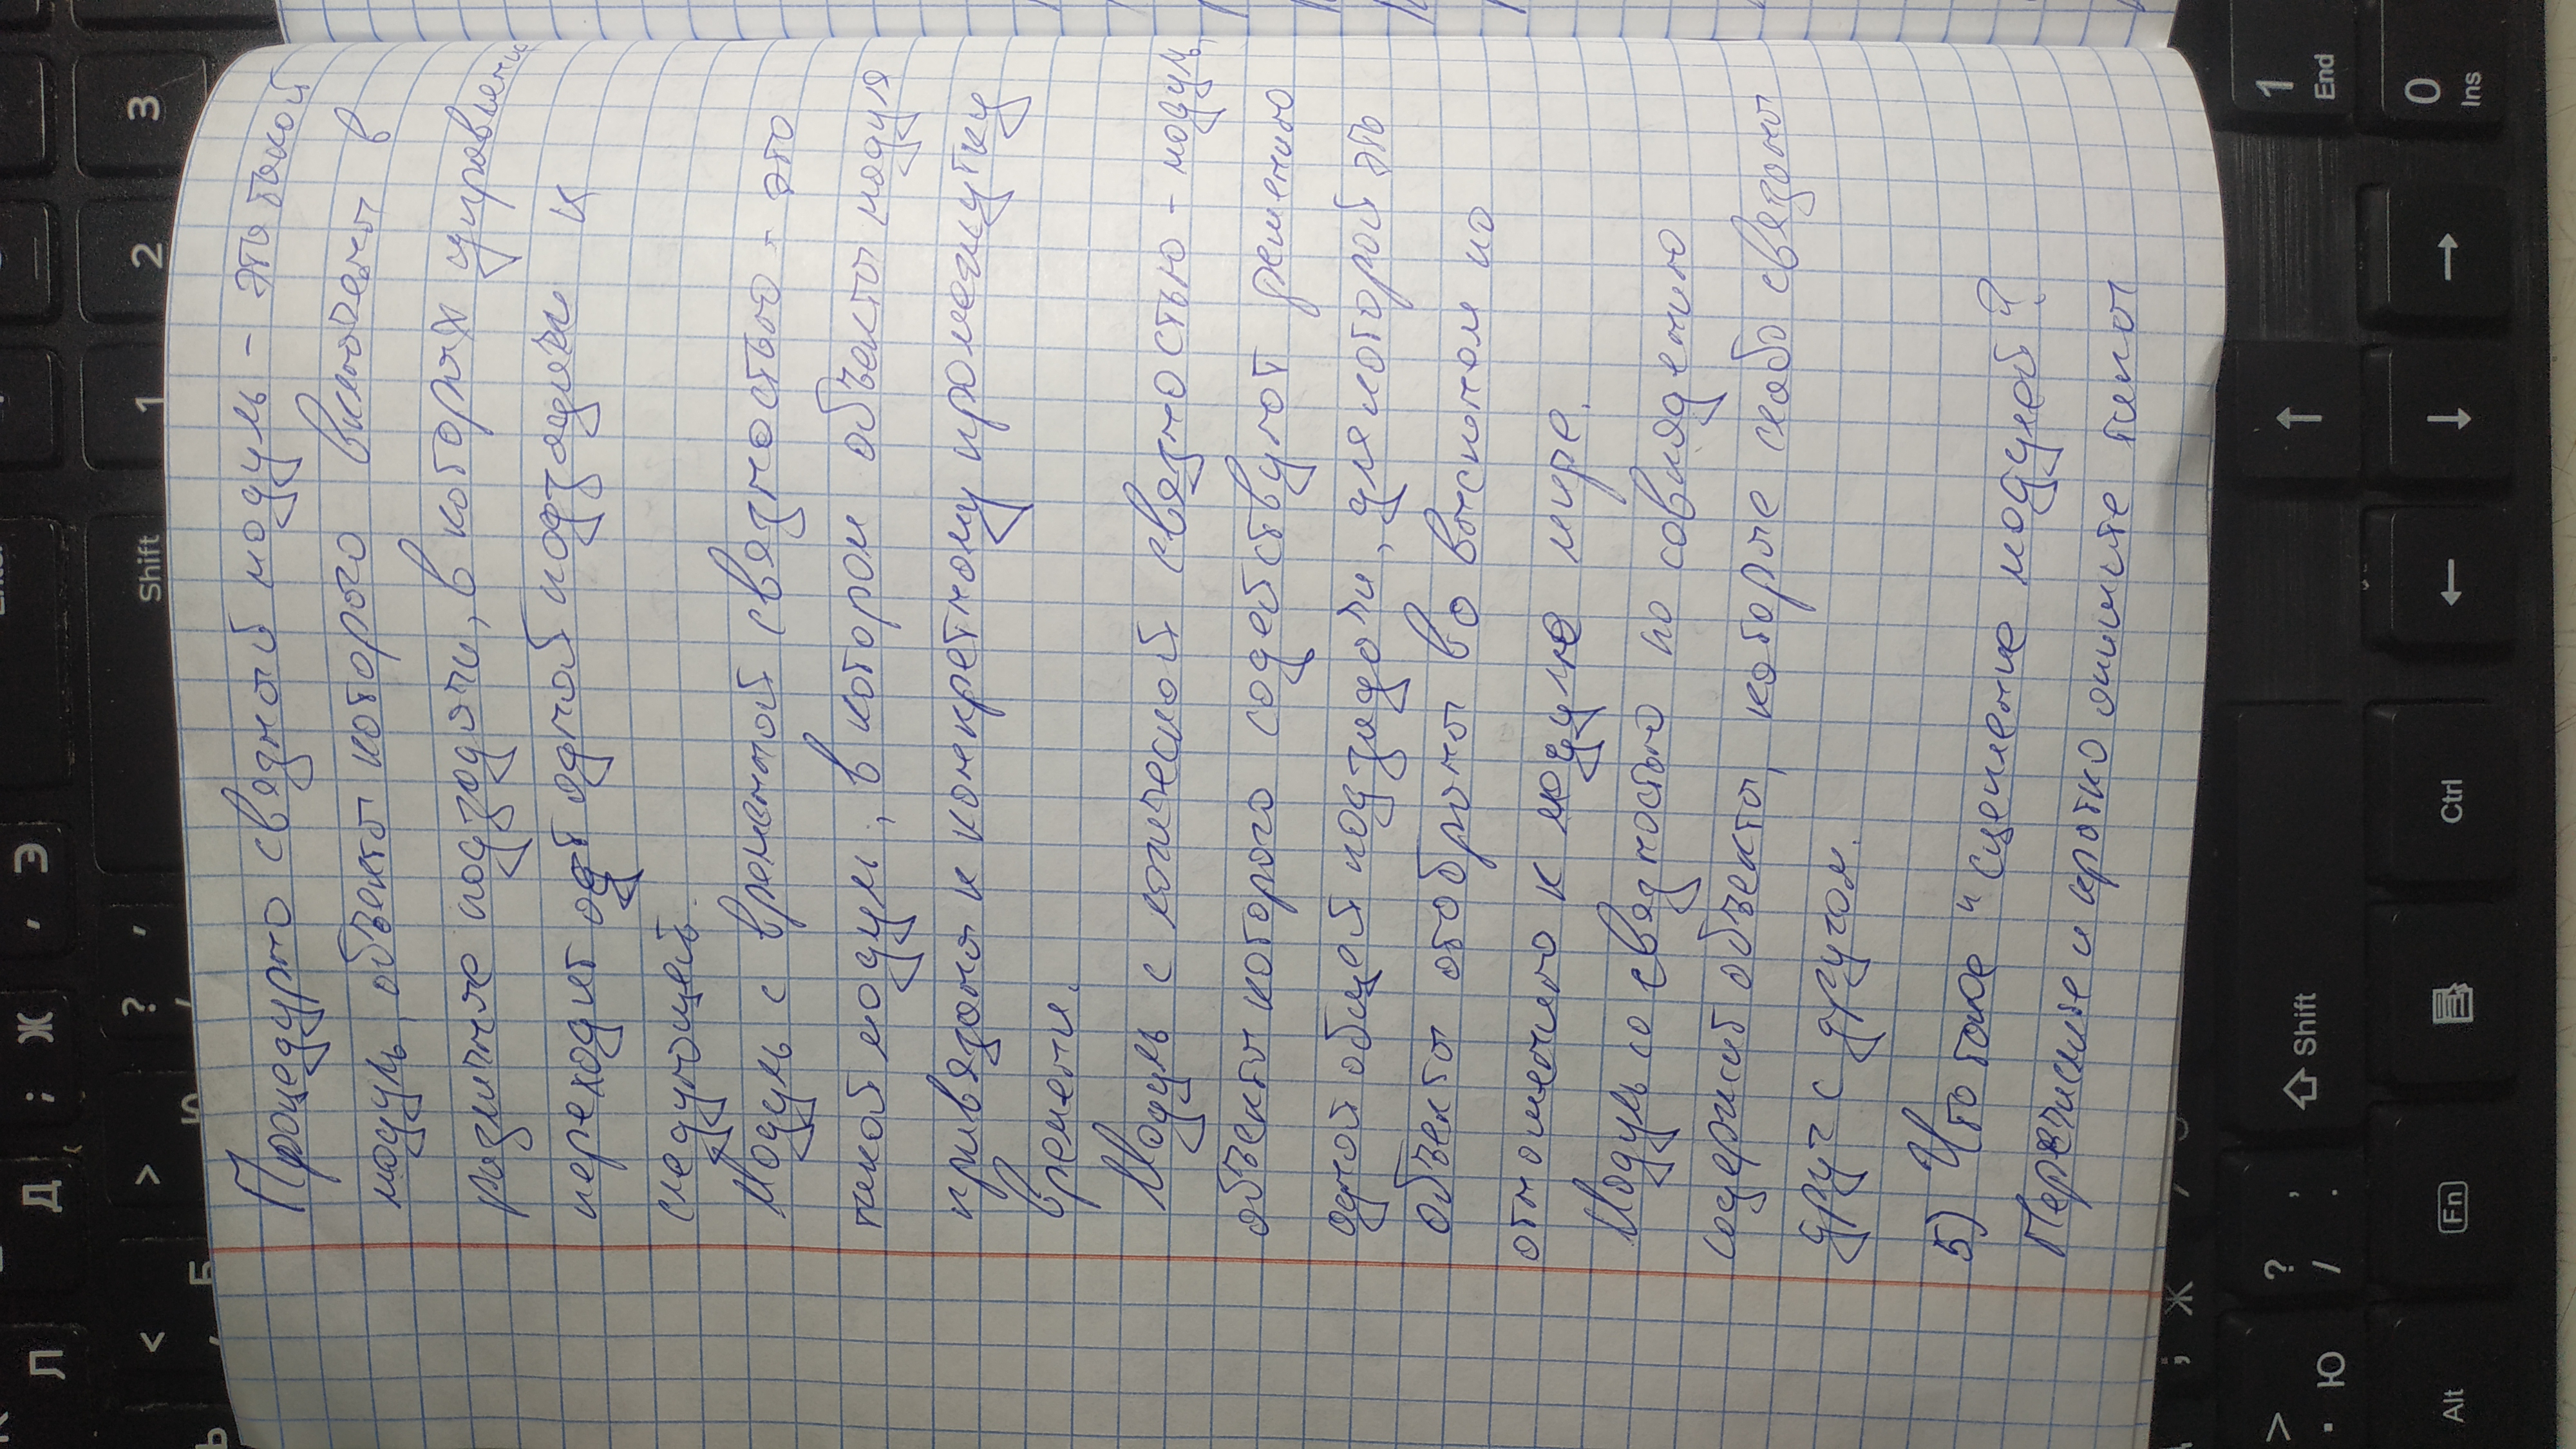 Л Д ; Ж , Э Enter
< > ? , Shift 1 2 3
Ь , Б Ю /
Процедурно связный модуль - это такой
модуль, объекты которого включены в
различные подзадачи, в которых управление
переходит от одной подзадачи к
следующей.
Модуль с временной связностью - это
такой модуль, в котором объекты модуля
привязаны к конкретному промежутку
времени.
Модуль с логической связностью - модуль,
объекты которого содействуют решению
одной общей подзадачи, для которой эти
объекты отобраны во внешнем по
отношению к модулю мире.
Модуль со связностью по совпадению
содержит объекты, которые слабо связаны
друг с другом.
5) Что такое "сцепление модулей"?
Перечислите и кратко опишите типы
; Ж , Э
> ? , Shift ↑ 1
. Ю / . End
Alt Fn Ctrl ← ↓ → 0
Ins